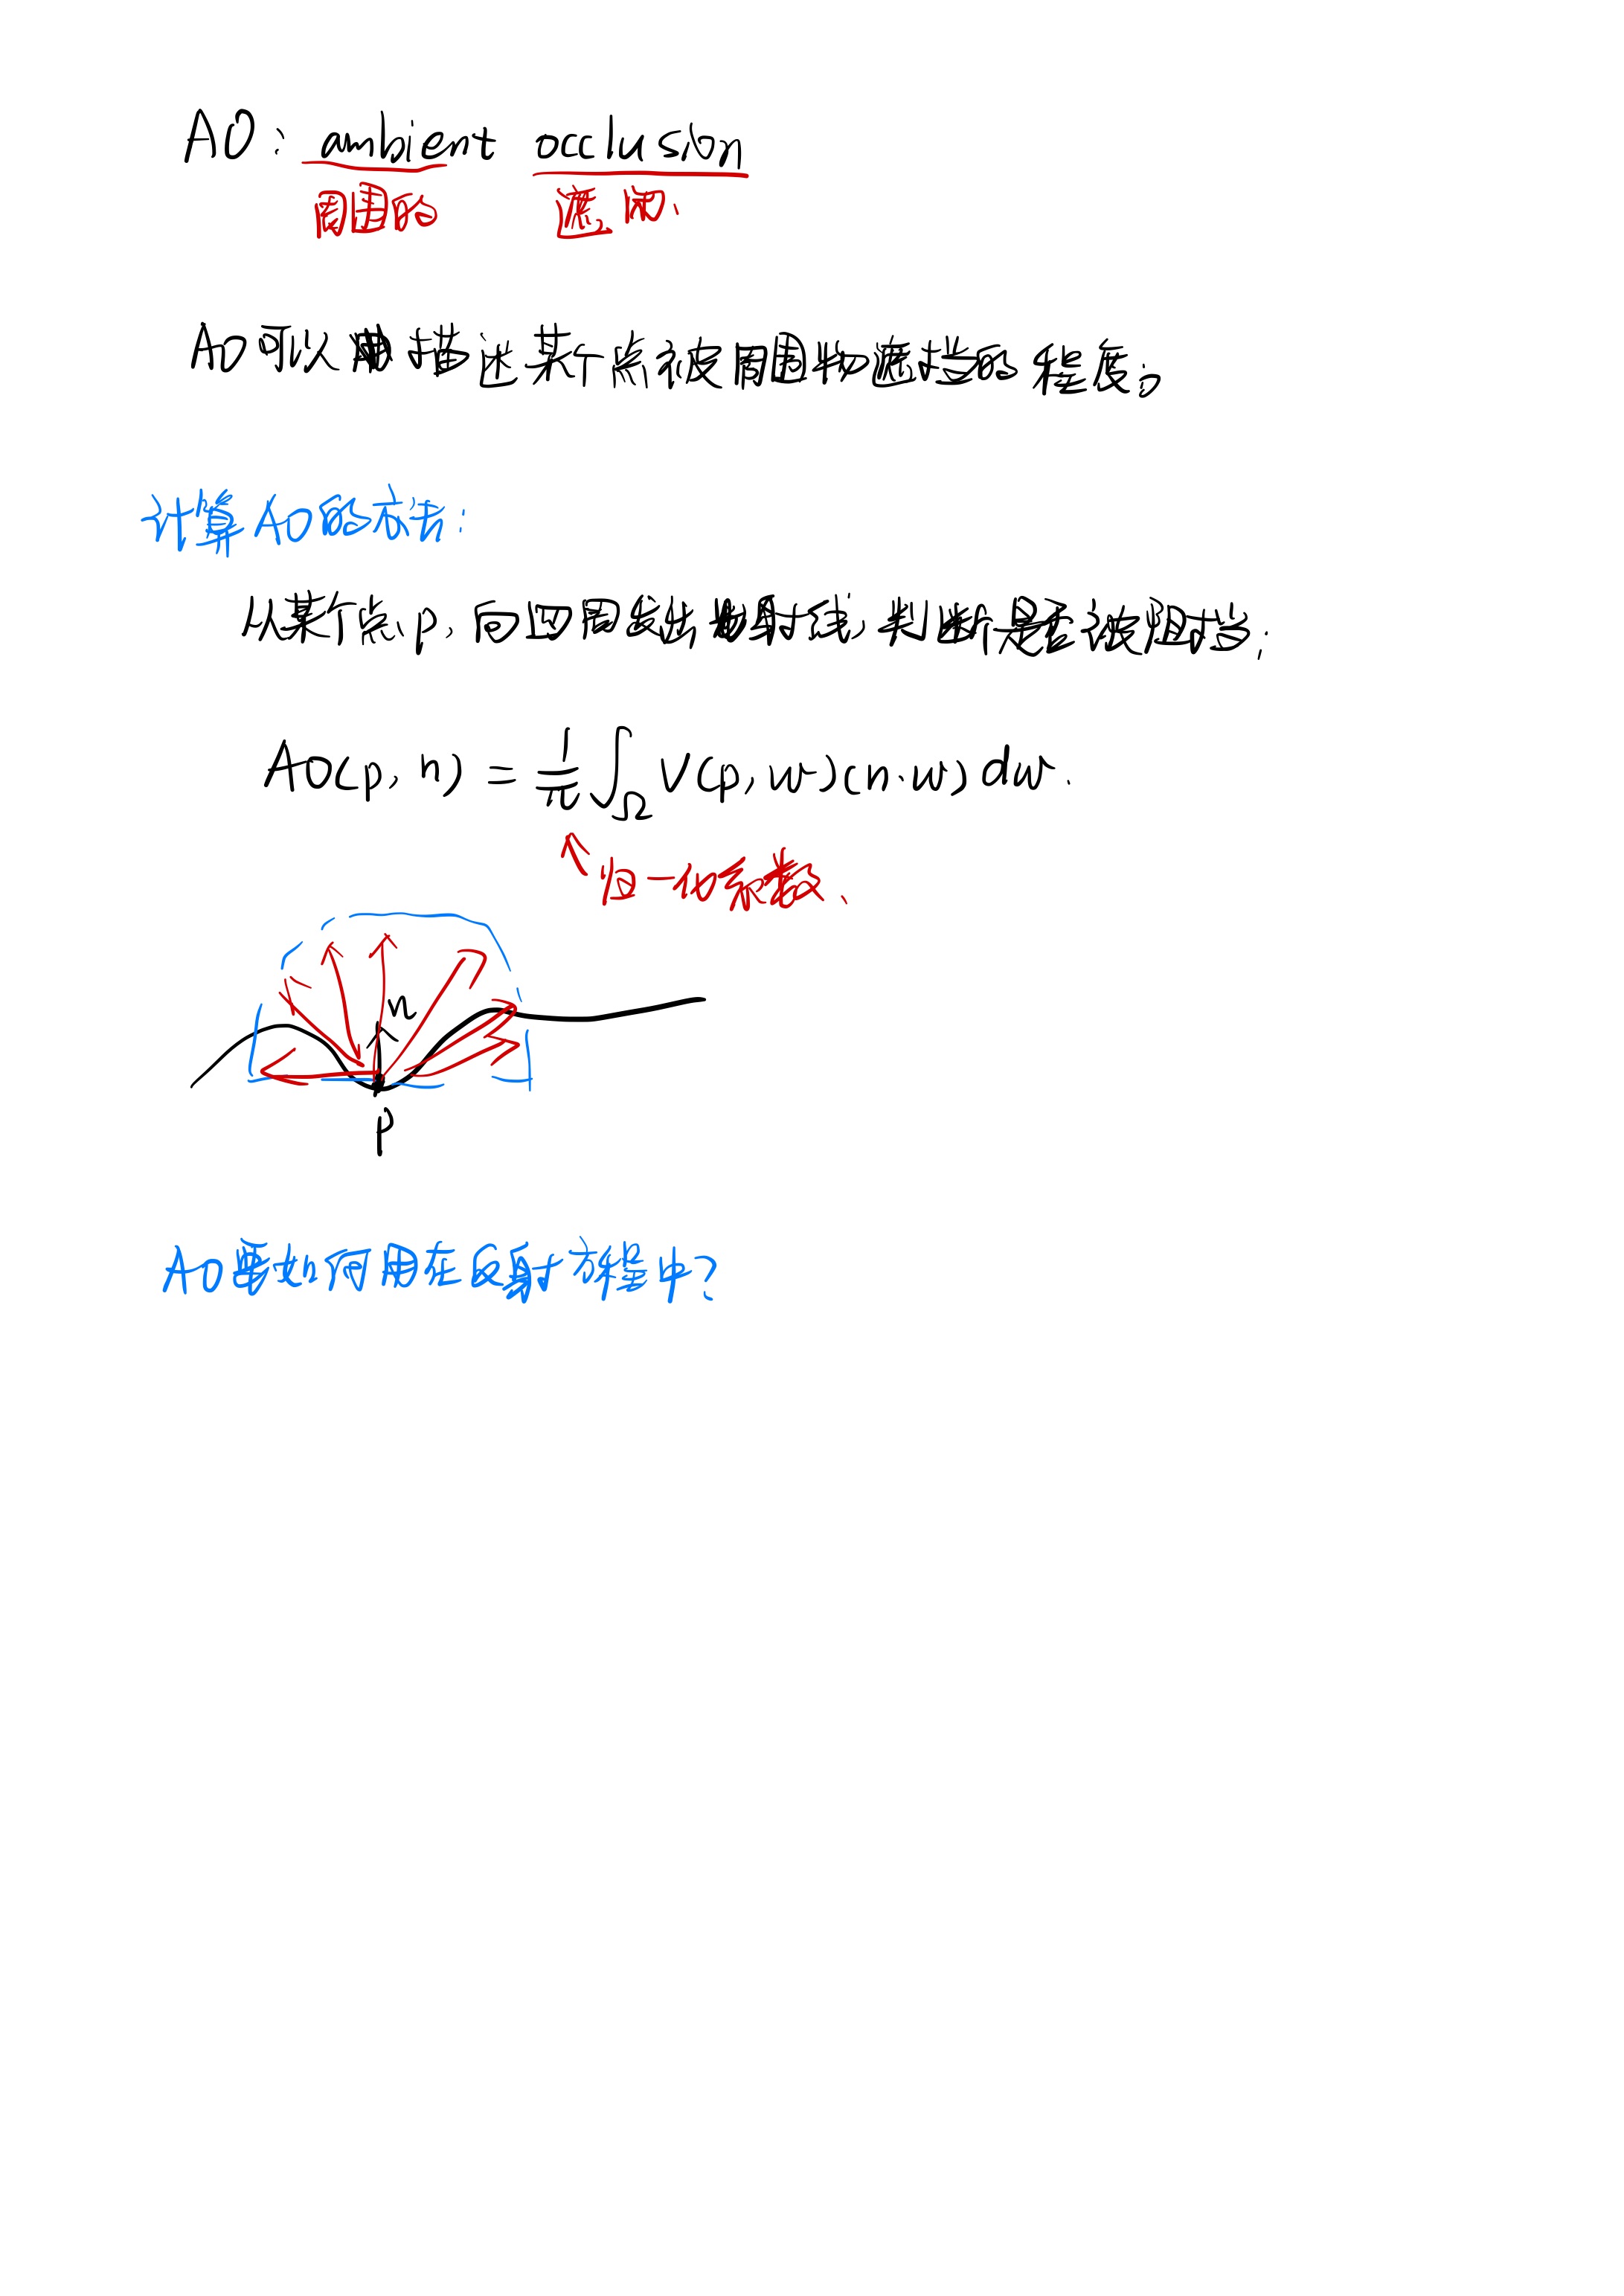 AO: ambient occlusion
周围的 遮闭.
AO可以用描述某个点被周围物遮挡的程度。
计算AO的方法:
从某个点p, 向四周发出射线, 判断是否被阻挡;
AO(p, n) = 1/π ∫Ω V(p, w)(n·w) dw.
↑归一化系数.
n
p
AO要如何用在反射方程中?